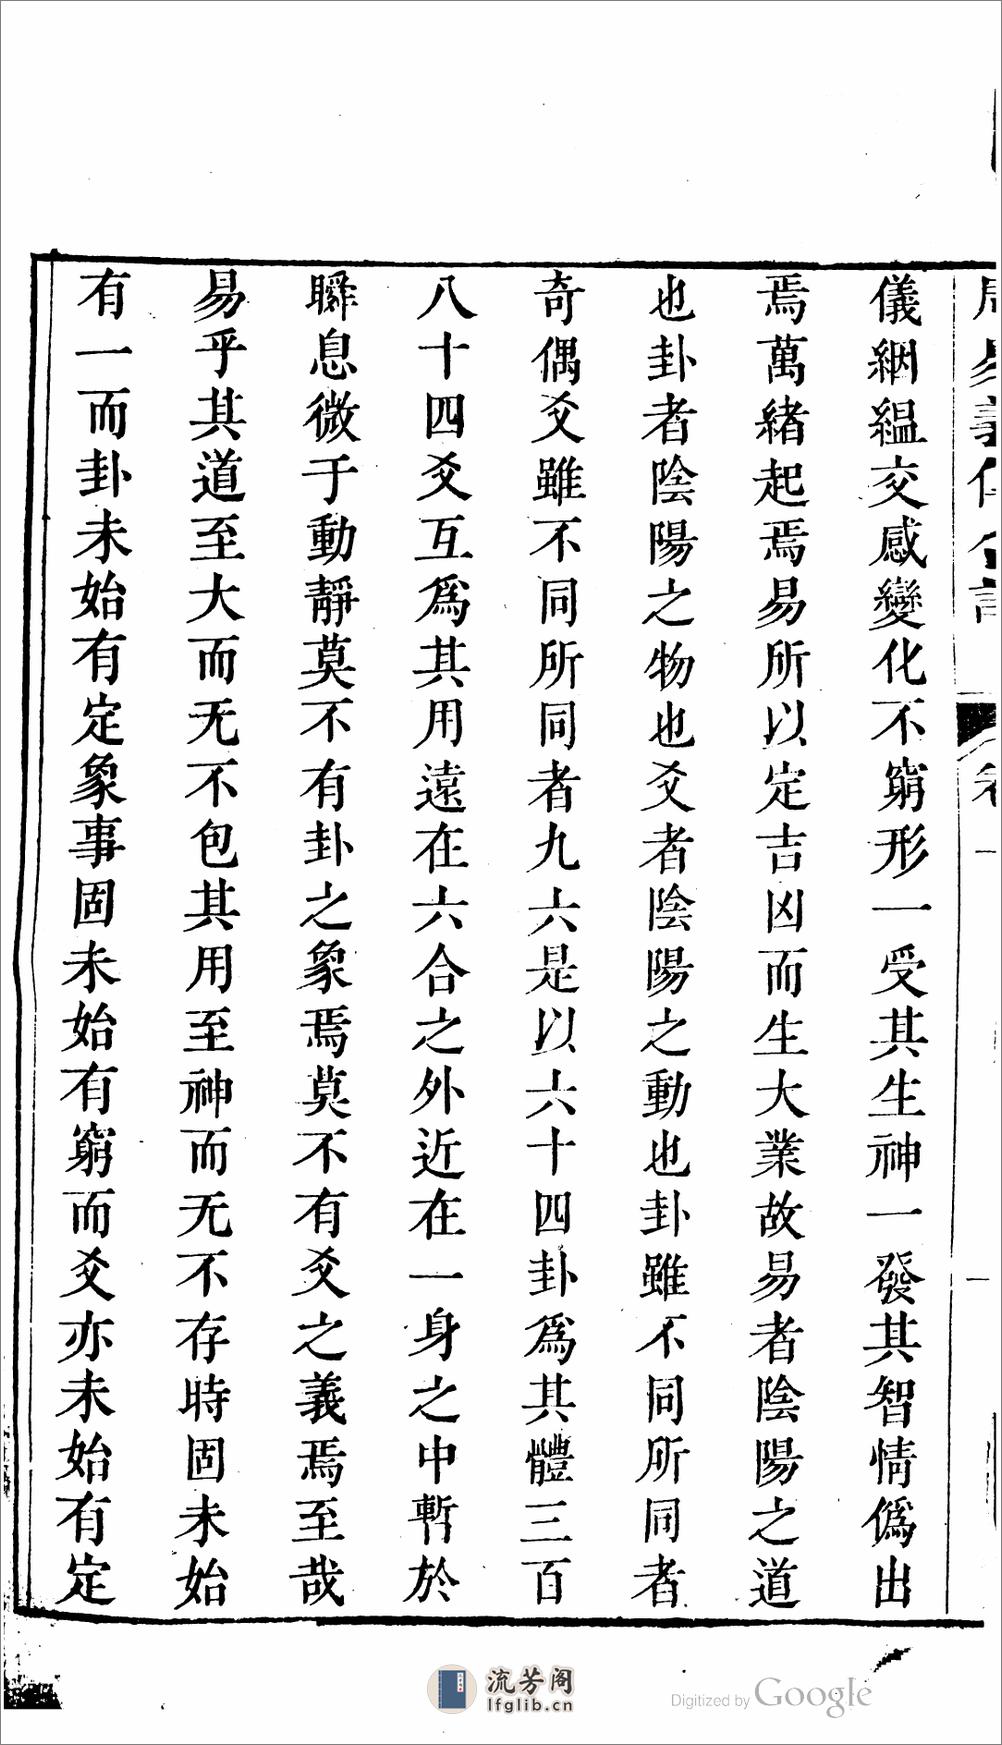 儀絪縕交感變化不窮形一受其生神一發其智情僞出
焉萬緒起焉易所以定吉凶而生大業故易者陰陽之道
也卦者陰陽之物也爻者陰陽之動也卦雖不同所同者
奇偶爻雖不同所同者九六是以六十四卦爲其體三百
八十四爻互爲其用遠在六合之外近在一身之中暫於
瞬息微于動靜莫不有卦之象焉莫不有爻之義焉至哉
易乎其道至大而无不包其用至神而无不存時固未始
有一而卦未始有定象事固未始有窮而爻亦未始有定
流芳阁
lfglib.cn
Digitized by Google